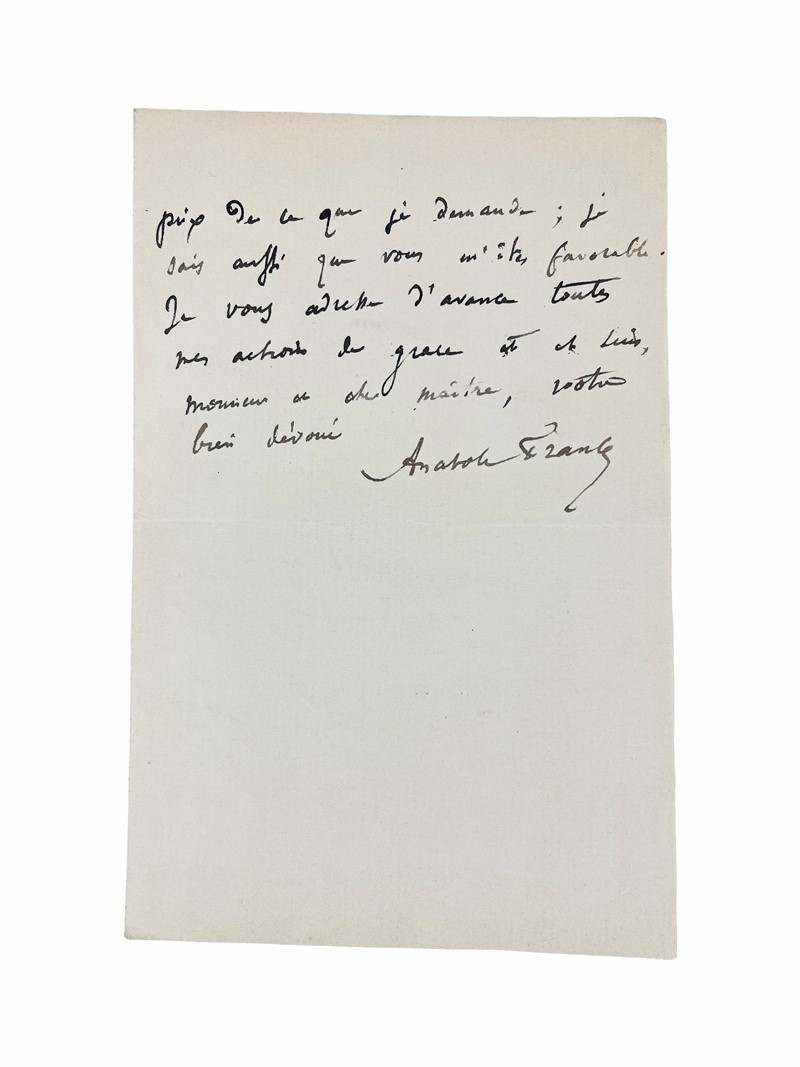 prix de ce que je demande ; je
sais aussi que vous m'êtes favorable.
Je vous adresse d'avance toutes
mes actions de grace et suis,
monsieur et cher maître, votre
bien dévoué
Anatole France